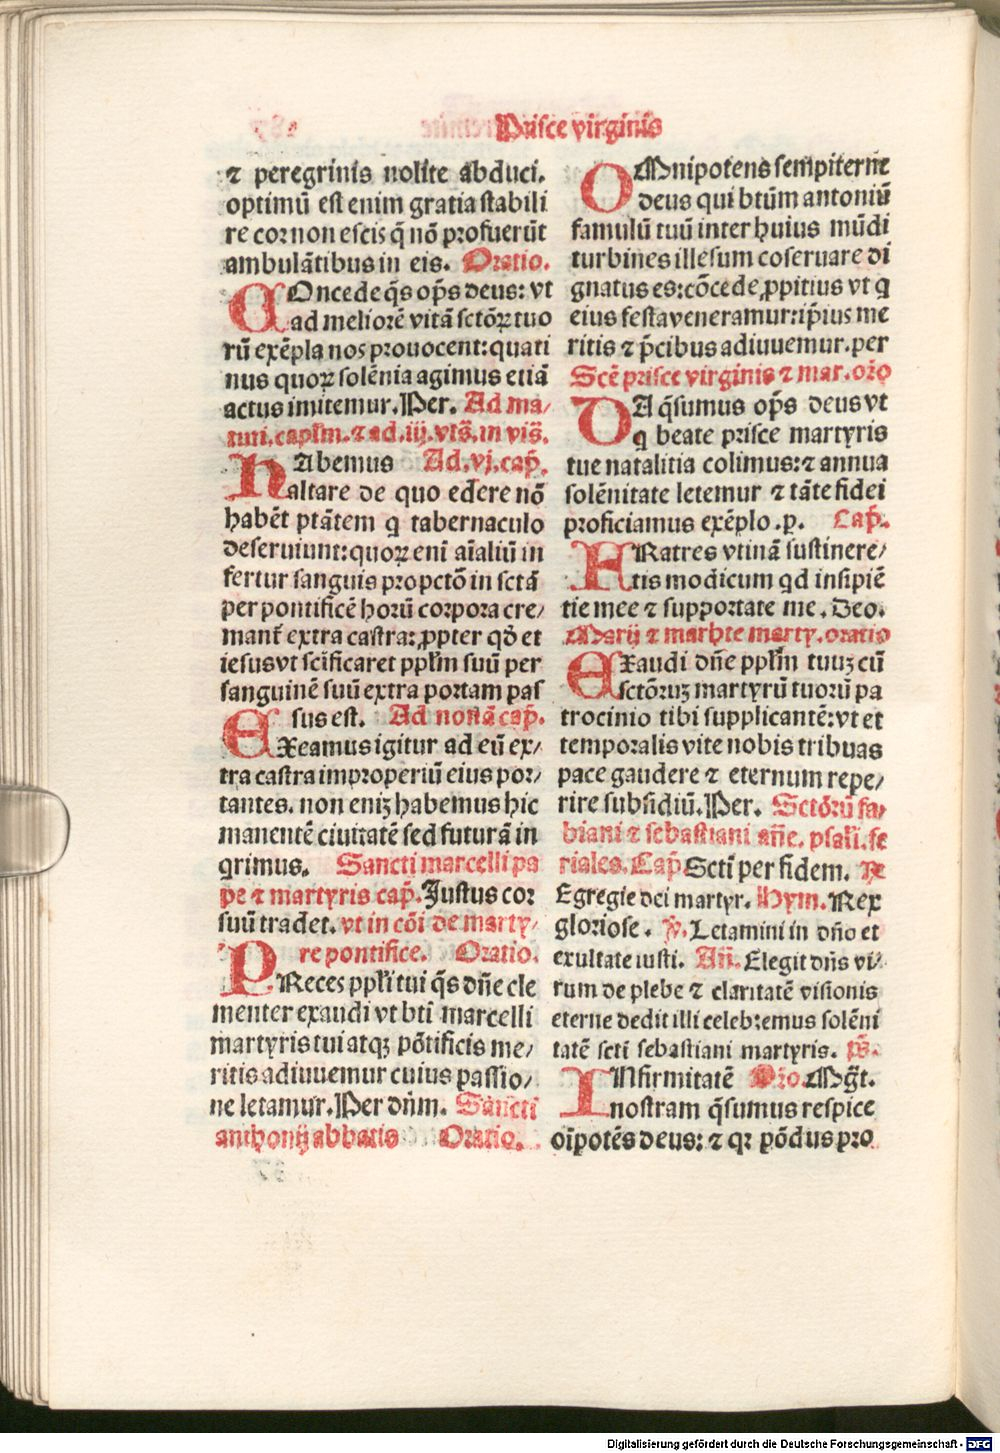 Prisce virginis
⁊ peregrinis nolite abduci.
optimū est enim gratia stabili
re cor non escis q̄ nō profuerūt
ambulātibus in eis. Oratio.
COncede q̄s op̄s deus: vt
ad meliorē vitā sctōꝝ tuo
rū exēpla nos prouocent: quati
nus quoꝝ solēnia agimus etiā
actus imitemur. Per. Ad ma⸗
turi. capl̄m. ⁊ ad. iij. vl̄s. in vis̄.
HAbemus Ad. vj. cap̄.
altare de quo edere nō
habēt ptātem q tabernaculo
deseruiunt: quoꝝ eni aīaliū in
fertur sanguis pro pctō in sctā
per pontificē horū corpora cre⸗
mant̄ extra castra: ꝓpter qd̄ et
iesus vt scīficaret ppl̄m suū per
sanguinē suū extra portam pas
sus est. Ad nonā cap̄.
EXeamus igitur ad eū ex⸗
tra castra improperiū eius por⸗
tantes. non eniꝫ habemus hic
manentē ciuitatē sed futurā in
qrimus. Sancti marcelli pa
pe ⁊ martyris cap̄. Justus cor
suū tradet. vt in cōi de marty⸗
re pontifice. Oratio.
PReces ppl̄i tui q̄s dn̄e cle
menter exaudi vt bti marcelli
martyris tui atqꝫ pōtificis me⸗
ritis adiuuemur cuius passio⸗
ne letamur. Per dn̄m. Sancti
anthonij abbatis Oratio.
OMnipotens sempiterne
deus qui btūm antoniū
famulū tuū inter huius mūdi
turbines illesum coseruare di
gnatus es: cōcede ꝓpitius vt q
eius festa veneramur: ip̄ius me
ritis ⁊ p̄cibus adiuuemur. per
Scē prisce virginis ⁊ mar. or̄o
DA q̄sumus op̄s deus vt
q beate prisce martyris
tue natalitia colimus: ⁊ annua
solēnitate letemur ⁊ tāte fidei
proficiamus exēplo. p. Cap̄.
FRatres vtinā sustinere⸗
tis modicum qd insipiē
tie mee ⁊ supportate me. Deo.
Marij ⁊ marhte marty. oratio
EXaudi dn̄e ppl̄m tuuꝫ cū
sctōruꝫ martyrū tuorū pa
trocinio tibi supplicantē: vt et
temporalis vite nobis tribuas
pace gaudere ⁊ eternum repe⸗
rire subsidiū. Per. Sctōrū fa⸗
biani ⁊ sebastiani an̄e. psal̄i. fe
riales. Cap̄ Scti per fidem. ℟
Egregie dei martyr. Hym. Rex
gloriose. ℣. Letamini in dn̄o et
exultate iusti. An̄. Elegit dn̄s vi⸗
rum de plebe ⁊ claritatē visionis
eterne dedit illi celebremus solēni
tatē scti sebastiani martyris. ps̄.
INfirmitatē Or̄o. Mg̅t.
nostram q̄sumus respice
oīpotēs deus: ⁊ qꝛ pōdus pro
Digitalisierung gefördert durch die Deutsche Forschungsgemeinschaft - DFG